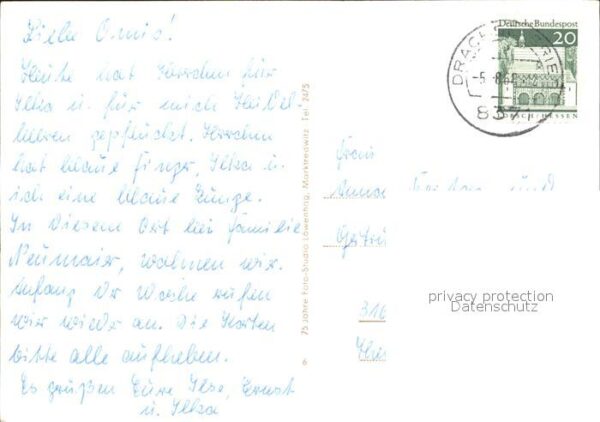 Liebe Omis!
Heute hat Herrchen für
Ilka u. für mich Heidel-
beeren gepflückt. Herrchen
hat blaue Finger, Ilka u.
ich eine blaue Zunge.
In diesem Ort bei Familie
Neumaier, wohnen wir.
Anfang der Woche rufen
wir wieder an. Die Karten
bitte alle aufheben.
Es grüßen Eure Ilse, Ernst
u. Ilka
75 Jahre Foto-Studio Löwenhag, Marktredwitz Tel. 2475
Deutsche Bundespost
20
LORSCH/HESSEN
DRACH
8371
Frau
Anna
und
316
privacy protection
Datenschutz